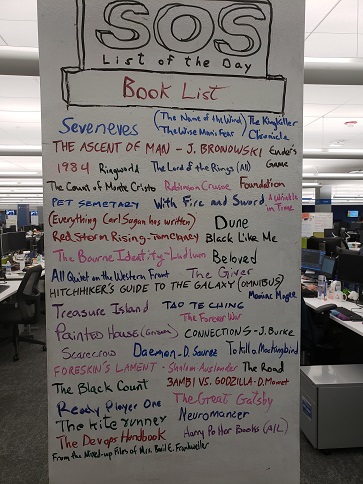 SOS
List of the Day
Book List
Seveneves (The Name of the Wind) The Kingkiller
The Wise Man's Fear Chronicle
THE ASCENT OF MAN - J. BRONOWSKI Ender's
1984 Ringworld The Lord of the Rings (All) Game
The Count of Monte Cristo Robinson Crusoe Foundation
PET SEMETARY With Fire and Sword A Wrinkle
in Time
(Everything Carl Sagan has written) Dune
Red Storm Rising - Tom Clancy Black Like Me
The Bourne Identity - Ludlum Beloved
All Quiet on the Western Front The Giver
HITCHHIKER'S GUIDE TO THE GALAXY (OMNIBUS)
Maniac Magee
Treasure Island TAO TE CHING
The Forever War
Painted House CONNECTIONS - J. Burke
Scarecrow Daemon - D. Suarez To Kill a Mockingbird
FORESKIN'S LAMENT - Shalom Auslander The Road
The Black Count BAMBI VS. GODZILLA - D. Mamet
Ready Player One The Great Gatsby
The Kite runner Neuromancer
The Devops Handbook Harry Potter Books (ALL)
From the Mixed-up Files of Mrs. Basil E. Frankweiler